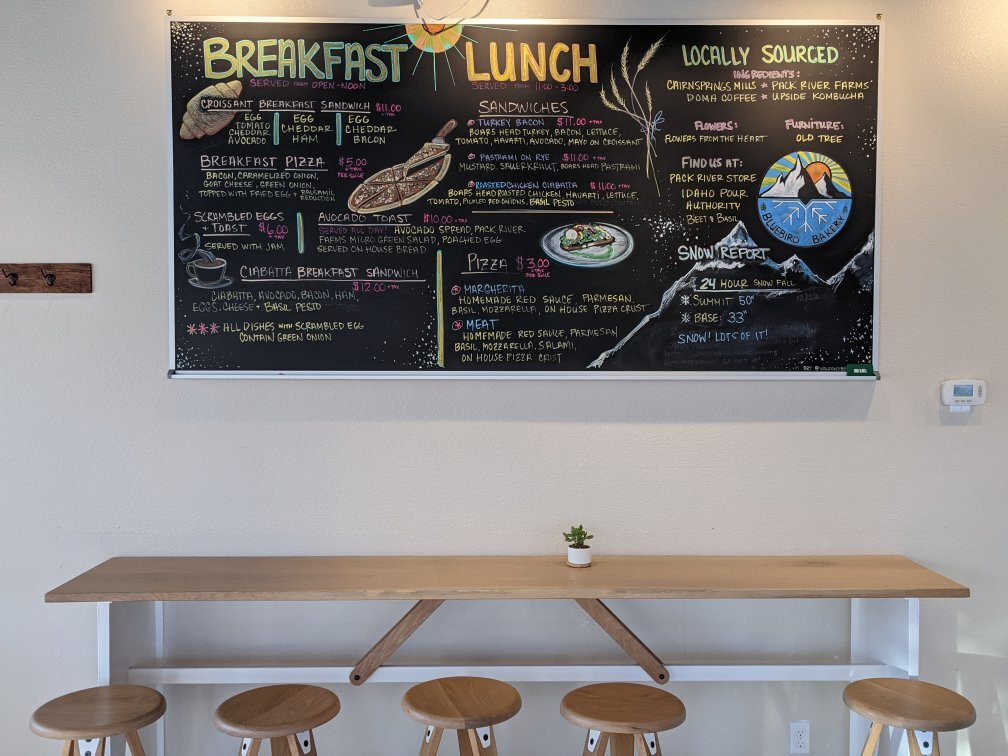 BREAKFAST
SERVED FROM OPEN-NOON
CROISSANT BREAKFAST SANDWICH $11.00
+ TAX
EGG
TOMATO
CHEDDAR
AVOCADO
EGG
CHEDDAR
HAM
EGG
CHEDDAR
BACON
BREAKFAST PIZZA $5.00
+ TAX
PER SLICE
BACON, CARAMELIZED ONION,
GOAT CHEESE, GREEN ONION,
TOPPED WITH FRIED EGG + BALSAMIC
REDUCTION
SCRAMBLED EGGS
+ TOAST $6.00
+ TAX
SERVED WITH JAM
AVOCADO TOAST $10.00 + TAX
SERVED ALL DAY! AVOCADO SPREAD, PACK RIVER
FARMS MICRO GREEN SALAD, POACHED EGG
SERVED ON HOUSE BREAD
CIABATTA BREAKFAST SANDWICH
$12.00 + TAX
CIABATTA, AVOCADO, BACON, HAM,
EGGS, CHEESE + BASIL PESTO
*** ALL DISHES WITH SCRAMBLED EGG
CONTAIN GREEN ONION
LUNCH
SERVED FROM 11:00-3:00
SANDWICHES
TURKEY BACON $11.00 + TAX
BOARS HEAD TURKEY, BACON, LETTUCE,
TOMATO, HAVARTI, AVOCADO, MAYO ON CROISSANT
PASTRAMI ON RYE $11.00 + TAX
MUSTARD, SAUERKRAUT, BOARS HEAD PASTRAMI
ROASTED CHICKEN CIABATTA $11.00 + TAX
BOARS HEAD ROASTED CHICKEN, HAVARTI, LETTUCE,
TOMATO, PICKLED RED ONIONS, BASIL PESTO
PIZZA $3.00
+ TAX
PER SLICE
MARGHERITA
HOMEMADE RED SAUCE, PARMESAN,
BASIL, MOZZARELLA, ON HOUSE PIZZA CRUST
MEAT
HOMEMADE RED SAUCE, PARMESAN
BASIL, MOZZARELLA, SALAMI,
ON HOUSE PIZZA CRUST
LOCALLY SOURCED
INGREDIENTS:
CAIRNSPRINGS MILLS * PACK RIVER FARMS
DOMA COFFEE * UPSIDE KOMBUCHA
FLOWERS:
FLOWERS FROM THE HEART
FURNITURE:
OLD TREE
FIND US AT:
PACK RIVER STORE
IDAHO POUR
AUTHORITY
BEET & BASIL
BLUEBIRD BAKERY
SNOW REPORT
24 HOUR SNOW FALL
* SUMMIT 50"
* BASE: 33"
SNOW! LOTS OF IT!